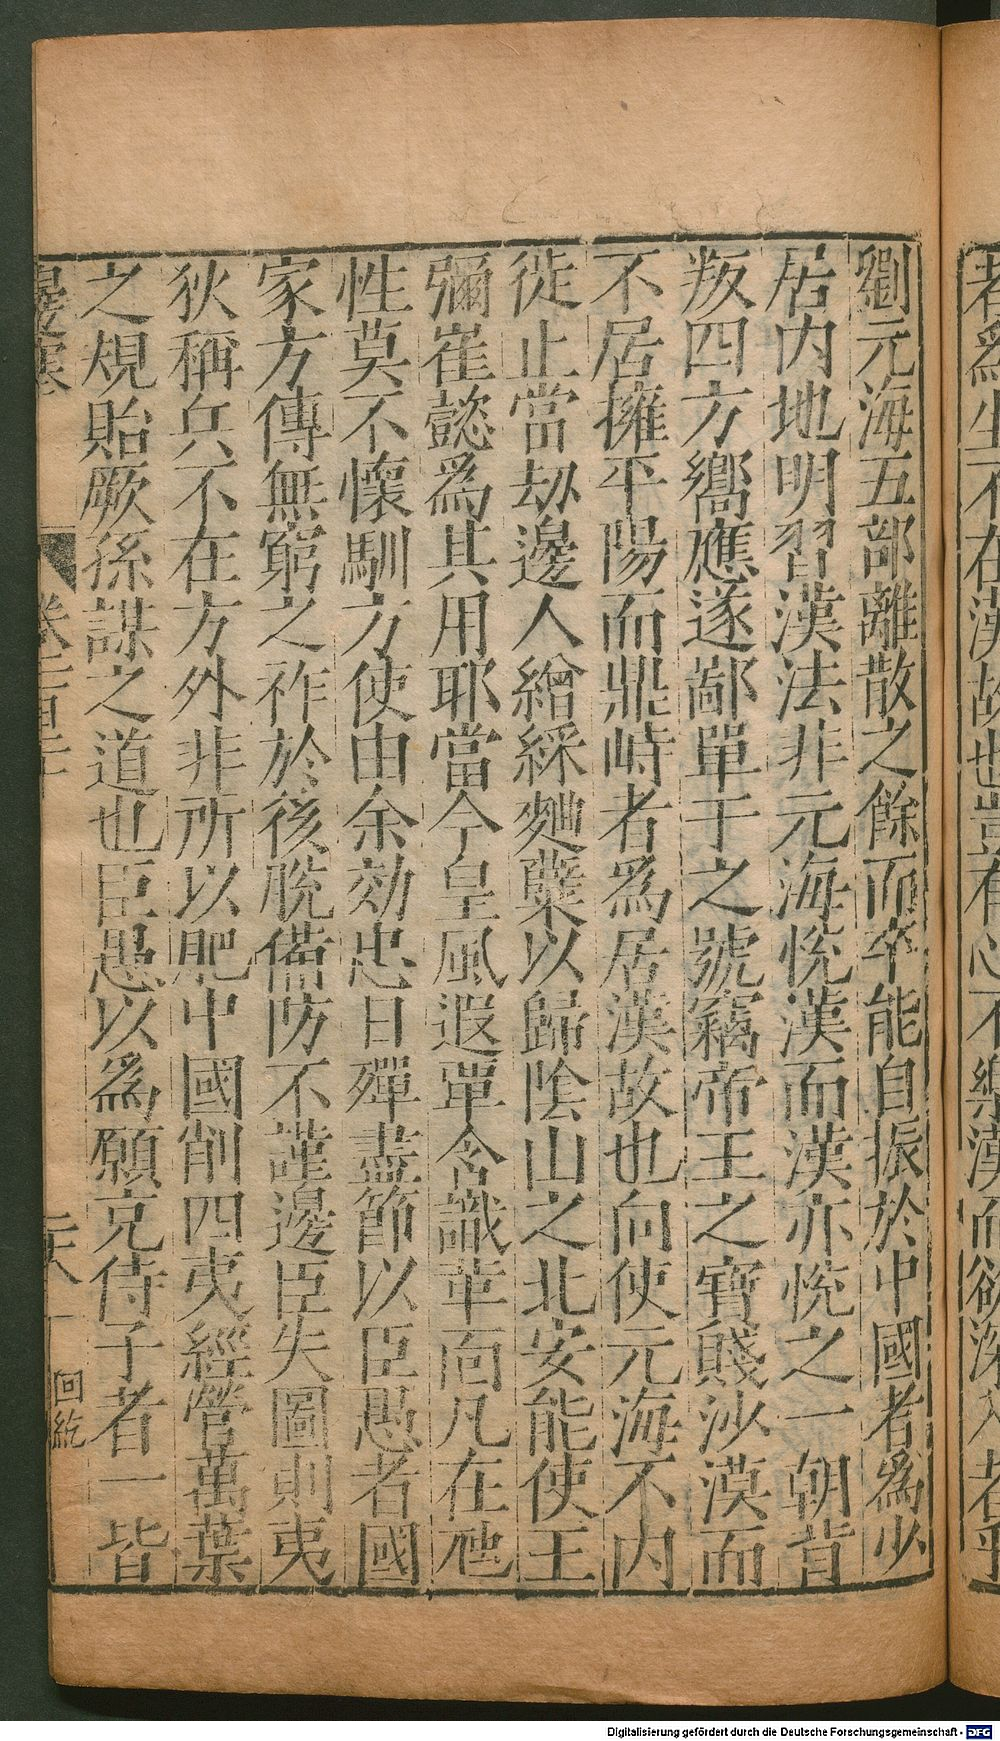 劉元海五部離散之餘而卒能自振於中國者爲少
居内地明習漢法非元海悦漢而漢亦悦之一朝背
叛四方嚮應遂鄙單于之號竊帝王之寶賤沙漠而
不居擁平陽而鼎峙者爲居漢故也向使元海不内
徙止當劫邊人繒綵麴蘖以歸陰山之北安能使王
彌崔懿爲其用耶當今皇風遐覃含識革面凡在虺
性莫不懷馴方使由余効忠日殫盡節以臣愚者國
家方傳無窮之祚於後脱備防不謹邊臣失圖則夷
狄稱兵不在方外非所以肥中國削四夷經營萬葉
之規貽厥孫謀之道也臣愚以爲願克侍子者一皆
邊塞
卷
二六
回紇
者爲生不在漢故也豈有心不樂漢而欲深入者乎
Digitalisierung gefördert durch die Deutsche Forschungsgemeinschaft - DFG